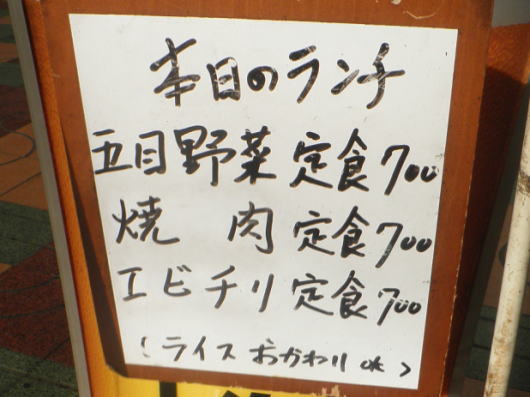 本日のランチ
五目野菜定食700
焼肉定食700
エビチリ定食700
(ライスおかわりok)